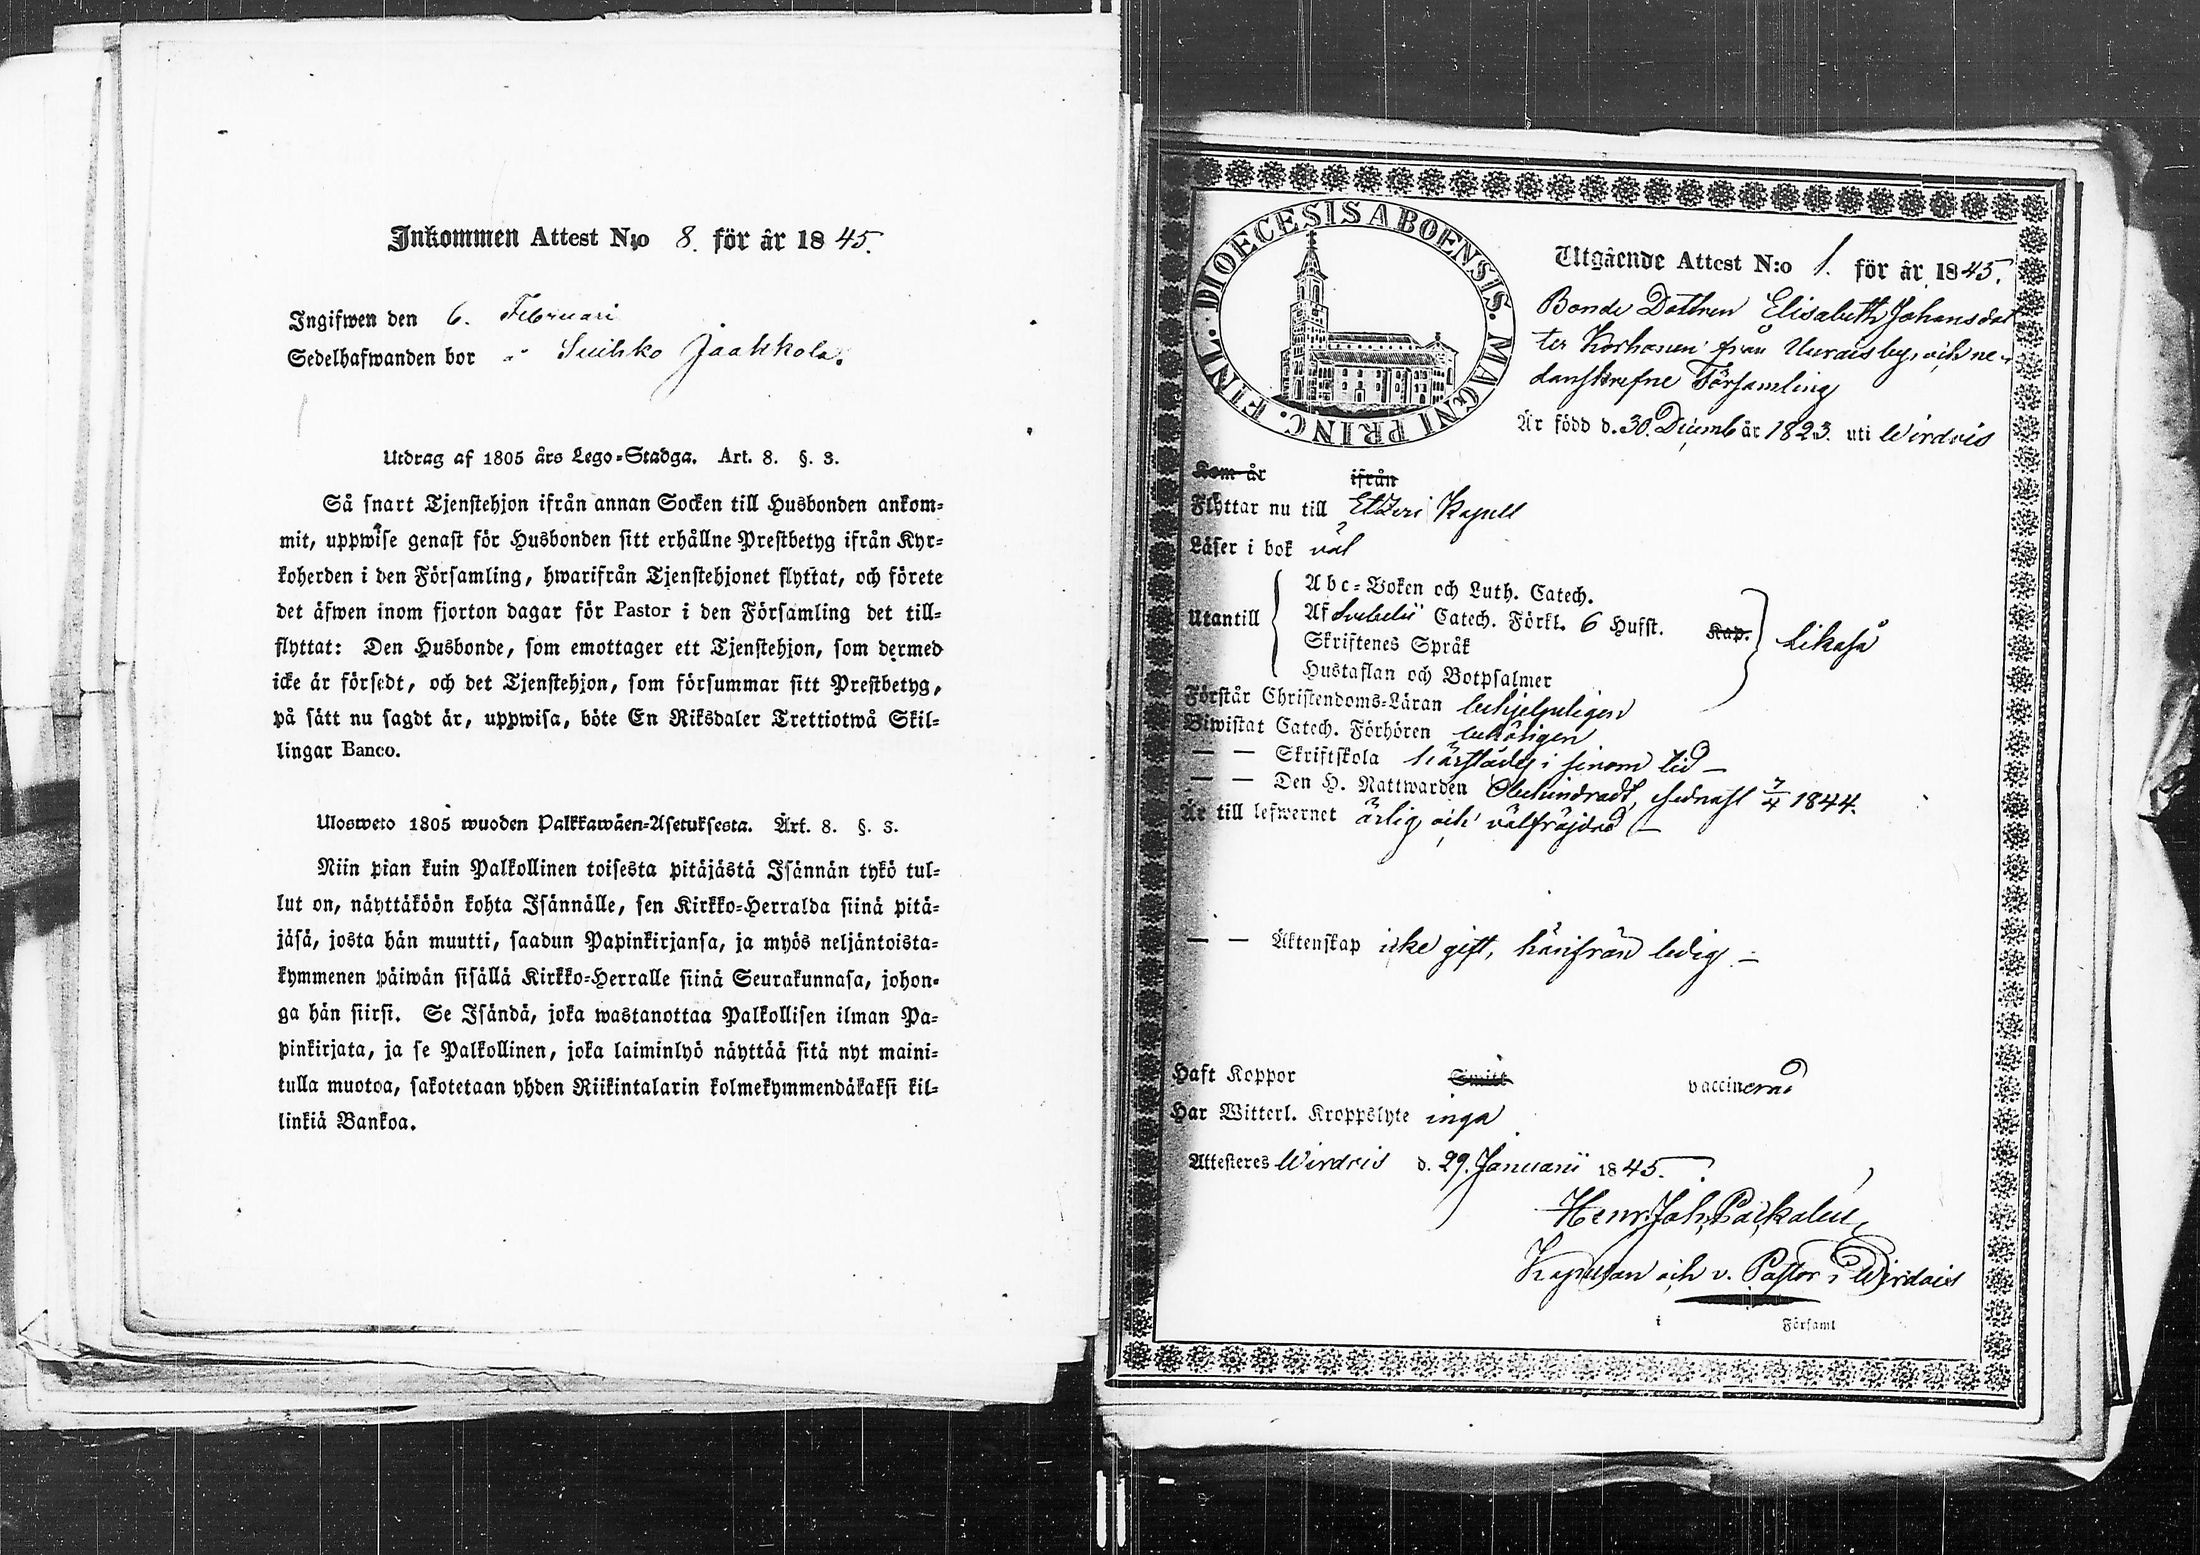 Inkommen Attest N:o 8. för år 1845.
Ingifwen den 6. Februari
Sedelhafwanden bor å Suihko Jaakkola.
Utdrag af 1805 års Lego-Stadga. Art. 8. §. 3.
Så snart Tjenstehjon ifrån annan Socken till Husbonden ankom-
mit, uppwise genast för Husbonden sitt erhållne Prestbetyg ifrån Kyr-
koherden i den Församling, hwarifrån Tjenstehjonet flyttat, och förete
det äfwen inom fjorton dagar för Pastor i den Församling det till-
flyttat: Den Husbonde, som emottager ett Tjenstehjon, som dermed
icke är försedt, och det Tjenstehjon, som försummar sitt Prestbetyg,
på sätt nu sagdt är, uppwisa, böte En Riksdaler Trettiotwå Skil-
lingar Banco.
Ulosweto 1805 wuoden Palkkawäen-Asetuksesta. Art. 8. §. 3.
Niin pian kuin Palkollinen toisesta pitäjästä Isännän tykö tul-
lut on, näyttäköön kohta Isännälle, sen Kirkko-Herralda siinä pitä-
jäsä, josta hän muutti, saadun Papinkirjansa, ja myös neljäntoista-
kymmenen päiwän sisällä Kirkko-Herralle siinä Seurakunnasa, johon-
ga hän siirsi. Se Isändä, joka wastanottaa Palkollisen ilman Pa-
pinkirjata, ja se Palkollinen, joka laiminlyö näyttää sitä nyt maini-
tulla muotoa, sakotetaan yhden Riikintalarin kolmekymmendäkaksi kil-
linkiä Bankoa.
FINL. DIOECESIS ABOENSIS. MAGNI PRINC.
Utgående Attest N:o 1. för år 1845.
Bonde Dottren Elisabeth Johansdot
ter Korhonen från Uurais by, och ne-
danskrefne Församling
Är född d. 30. Decemb år 1823. uti Wirdois
Kom år ifrån
Flyttar nu till Etzeri Kapell
Läser i bok väl
Utantill
Abc-Boken och Luth. Catech.
Af Svebelii Catech. Förkl. 6 Hufst. Kap.
Skriftenes Språk
Hustaflan och Botpsalmer
Likaså
Förstår Christendoms-Läran behjelpeligen
Biwistat Catech. Förhören behörigen
— — Skriftskola härstädes i sinom tid —
— — Den H. Nattwarden Obehindradt, sednast 7/4 1844.
Är till lefwernet ärlig och välfräjdad —
— — Äktenskap icke gift, härifrån ledig. —
Haft Koppor Smitt vaccinerad
Har Witterl. Kroppslyte inga
Attesteres Wirdois d. 29. Januarii 1845.
Henr. Joh.
Kapellan och v. Pastor i Wirdois
i Församl